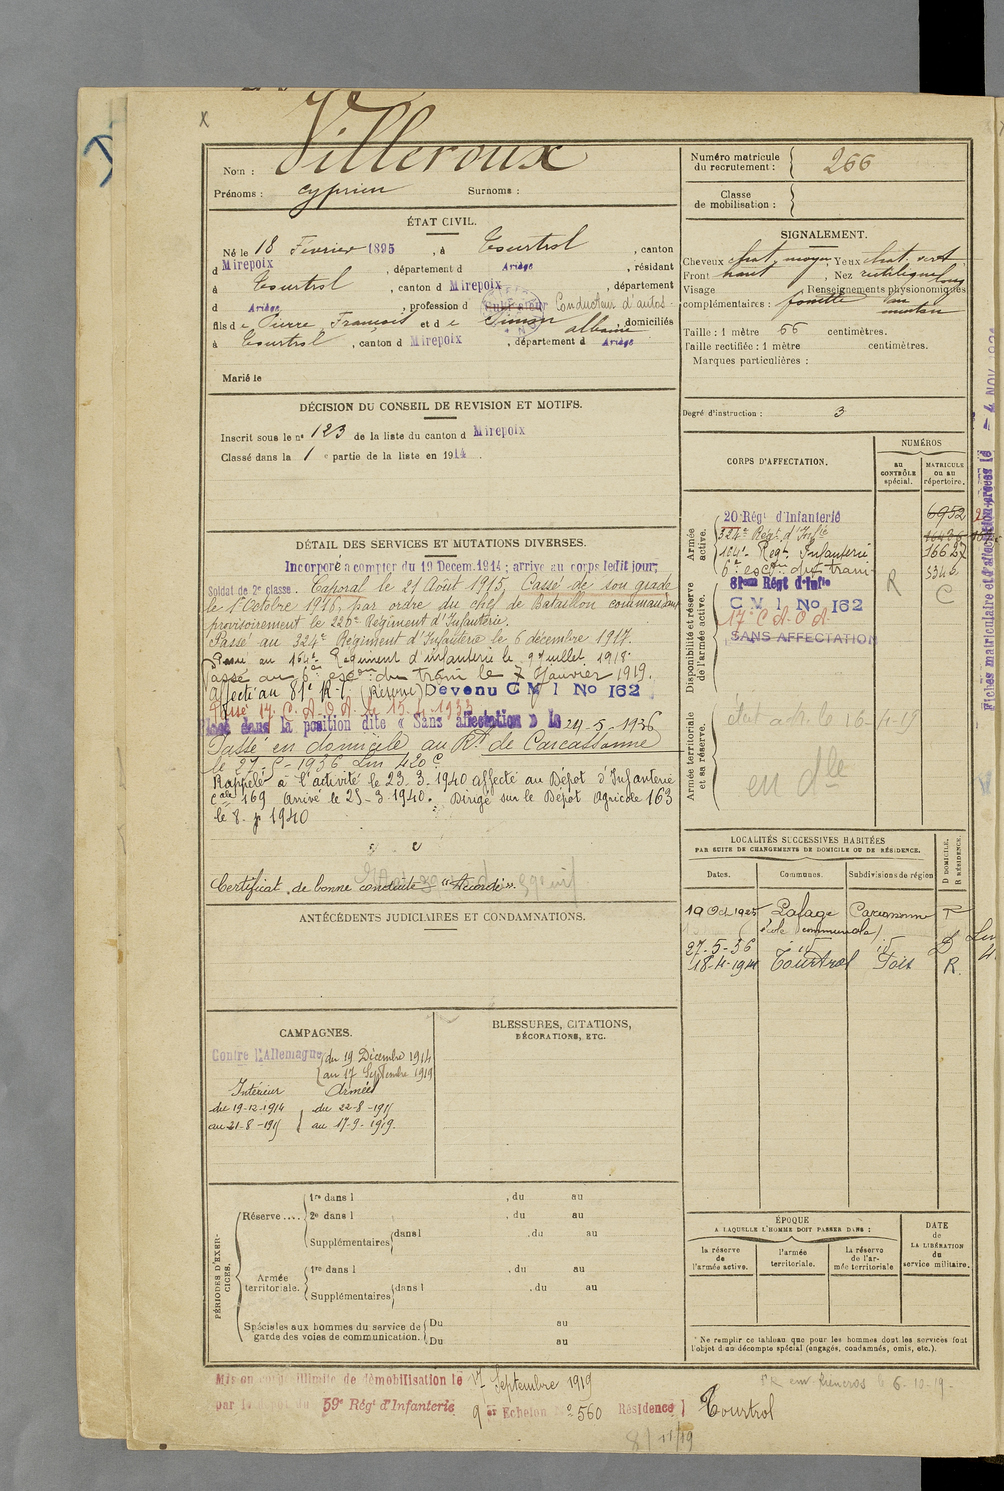 Villeroux
Nom :
Prénoms : Cyprien Surnoms :
ÉTAT CIVIL.
Né le 18 Février 1895, à Tourtrol, canton
d Mirepoix, département d Ariège, résidant
à Tourtrol, canton d Mirepoix, département
d Ariège, profession d Cultivateur Conducteur d'autos
fils de Pierre, François et de Simon Albanie, domiciliés
à Tourtrol, canton d Mirepoix, département d Ariège
Marié le
DÉCISION DU CONSEIL DE REVISION ET MOTIFS.
Inscrit sous le n° 123 de la liste du canton d Mirepoix
Classé dans la 1 e partie de la liste en 1914.
DÉTAIL DES SERVICES ET MUTATIONS DIVERSES.
Incorporé à compter du 19 Décem. 1914 ; arrivé au corps ledit jour,
Soldat de 2e classe. Caporal le 21 Août 1915, Cassé de son grade
le 1 Octobre 1916, par ordre du chef de Bataillon commandant
provisoirement le 226e Régiment d'Infanterie.
Passé au 324e Régiment d'Infanterie le 6 décembre 1917.
Passé au 164e Régiment d'infanterie le 9 juillet 1918
Passé au 6e escon du train le Janvier 1919.
Affecté au 81e R.I. (Réserve) Devenu C M I No 162
Passé 17 C.A.O.A. le 15.4.1933
Placé dans la position dite « Sans affectation » le 24-5-1936
Passé en domicile au Rt de Carcassonne
le 27-5-1936 Lin 420
Rappelé à l'activité le 23.3.1940 affecté au Dépôt d'Infanterie
cale 169, arrivé le 25-3-1940. Dirigé sur le Dépôt Agricole 163
le 8- 1940
Certificat de bonne conduite "Accordé".
ANTÉCÉDENTS JUDICIAIRES ET CONDAMNATIONS.
CAMPAGNES.
Contre l'Allemagne du 19 Décembre 1914
au 17 Septembre 1919
Intérieur Armées
du 19-12-1914 du 22-8-1915
au 21-8-1915 au 17-9-1919.
BLESSURES, CITATIONS,
DÉCORATIONS, ETC.
PÉRIODES D'EXERCICES.
Réserve....
1re dans l , du au
2e dans l , du au
Supplémentaires dans l , du au
Armée territoriale.
1re dans l , du au
Supplémentaires dans l , du au
Spéciales aux hommes du service de
garde des voies de communication.
Du au
Du au
Mis en congé illimité de démobilisation le 17 Septembre 1919
par le dépôt du 59e Régt d'Infanterie
9 er Echelon N° 560 Résidence Tourtrol
8/11/19
Numéro matricule
du recrutement : 266
Classe
de mobilisation :
SIGNALEMENT.
Cheveux chat. moyen, Yeux chat. vert
Front haut, Nez rectiligne
Visage long Renseignements physionomiques
complémentaires : fossette au
menton
Taille : 1 mètre 66 centimètres.
Taille rectifiée : 1 mètre centimètres.
Marques particulières :
Degré d'instruction : 3
CORPS D'AFFECTATION.
NUMÉROS
au
CONTRÔLE
spécial.
MATRICULE
ou au
répertoire.
Armée
active.
20 Régt d'Infanterie 6952
324e Régt d'Infie
164e Régt Infanterie 16627
6e escon du train 5346
Disponibilité et réserve
de l'armée active.
81ème Régt d'Infie R C
C M I No 162
17e C.A.O.A.
SANS AFFECTATION
Armée territoriale
et sa réserve.
en dle
LOCALITÉS SUCCESSIVES HABITÉES
PAR SUITE DE CHANGEMENTS DE DOMICILE OU DE RÉSIDENCE.
Dates.
Communes.
Subdivisions de région
D DOMICILE,
R RÉSIDENCE.
19 Oct 1925 Lafage Carcassonne R
(école communale)
27-5-36 id id D
18-4-1941 Tourtrol Foix R.
ÉPOQUE
A LAQUELLE L'HOMME DOIT PASSER DANS :
la réserve
de
l'armée active.
l'armée
territoriale.
la réserve
de l'ar-
mée territoriale
DATE
de
LA LIBÉRATION
du
service militaire.
* Ne remplir ce tableau que pour les hommes dont les services font
l'objet d'un décompte spécial (engagés, condamnés, omis, etc.).
Fiches matriculaire et d'affection